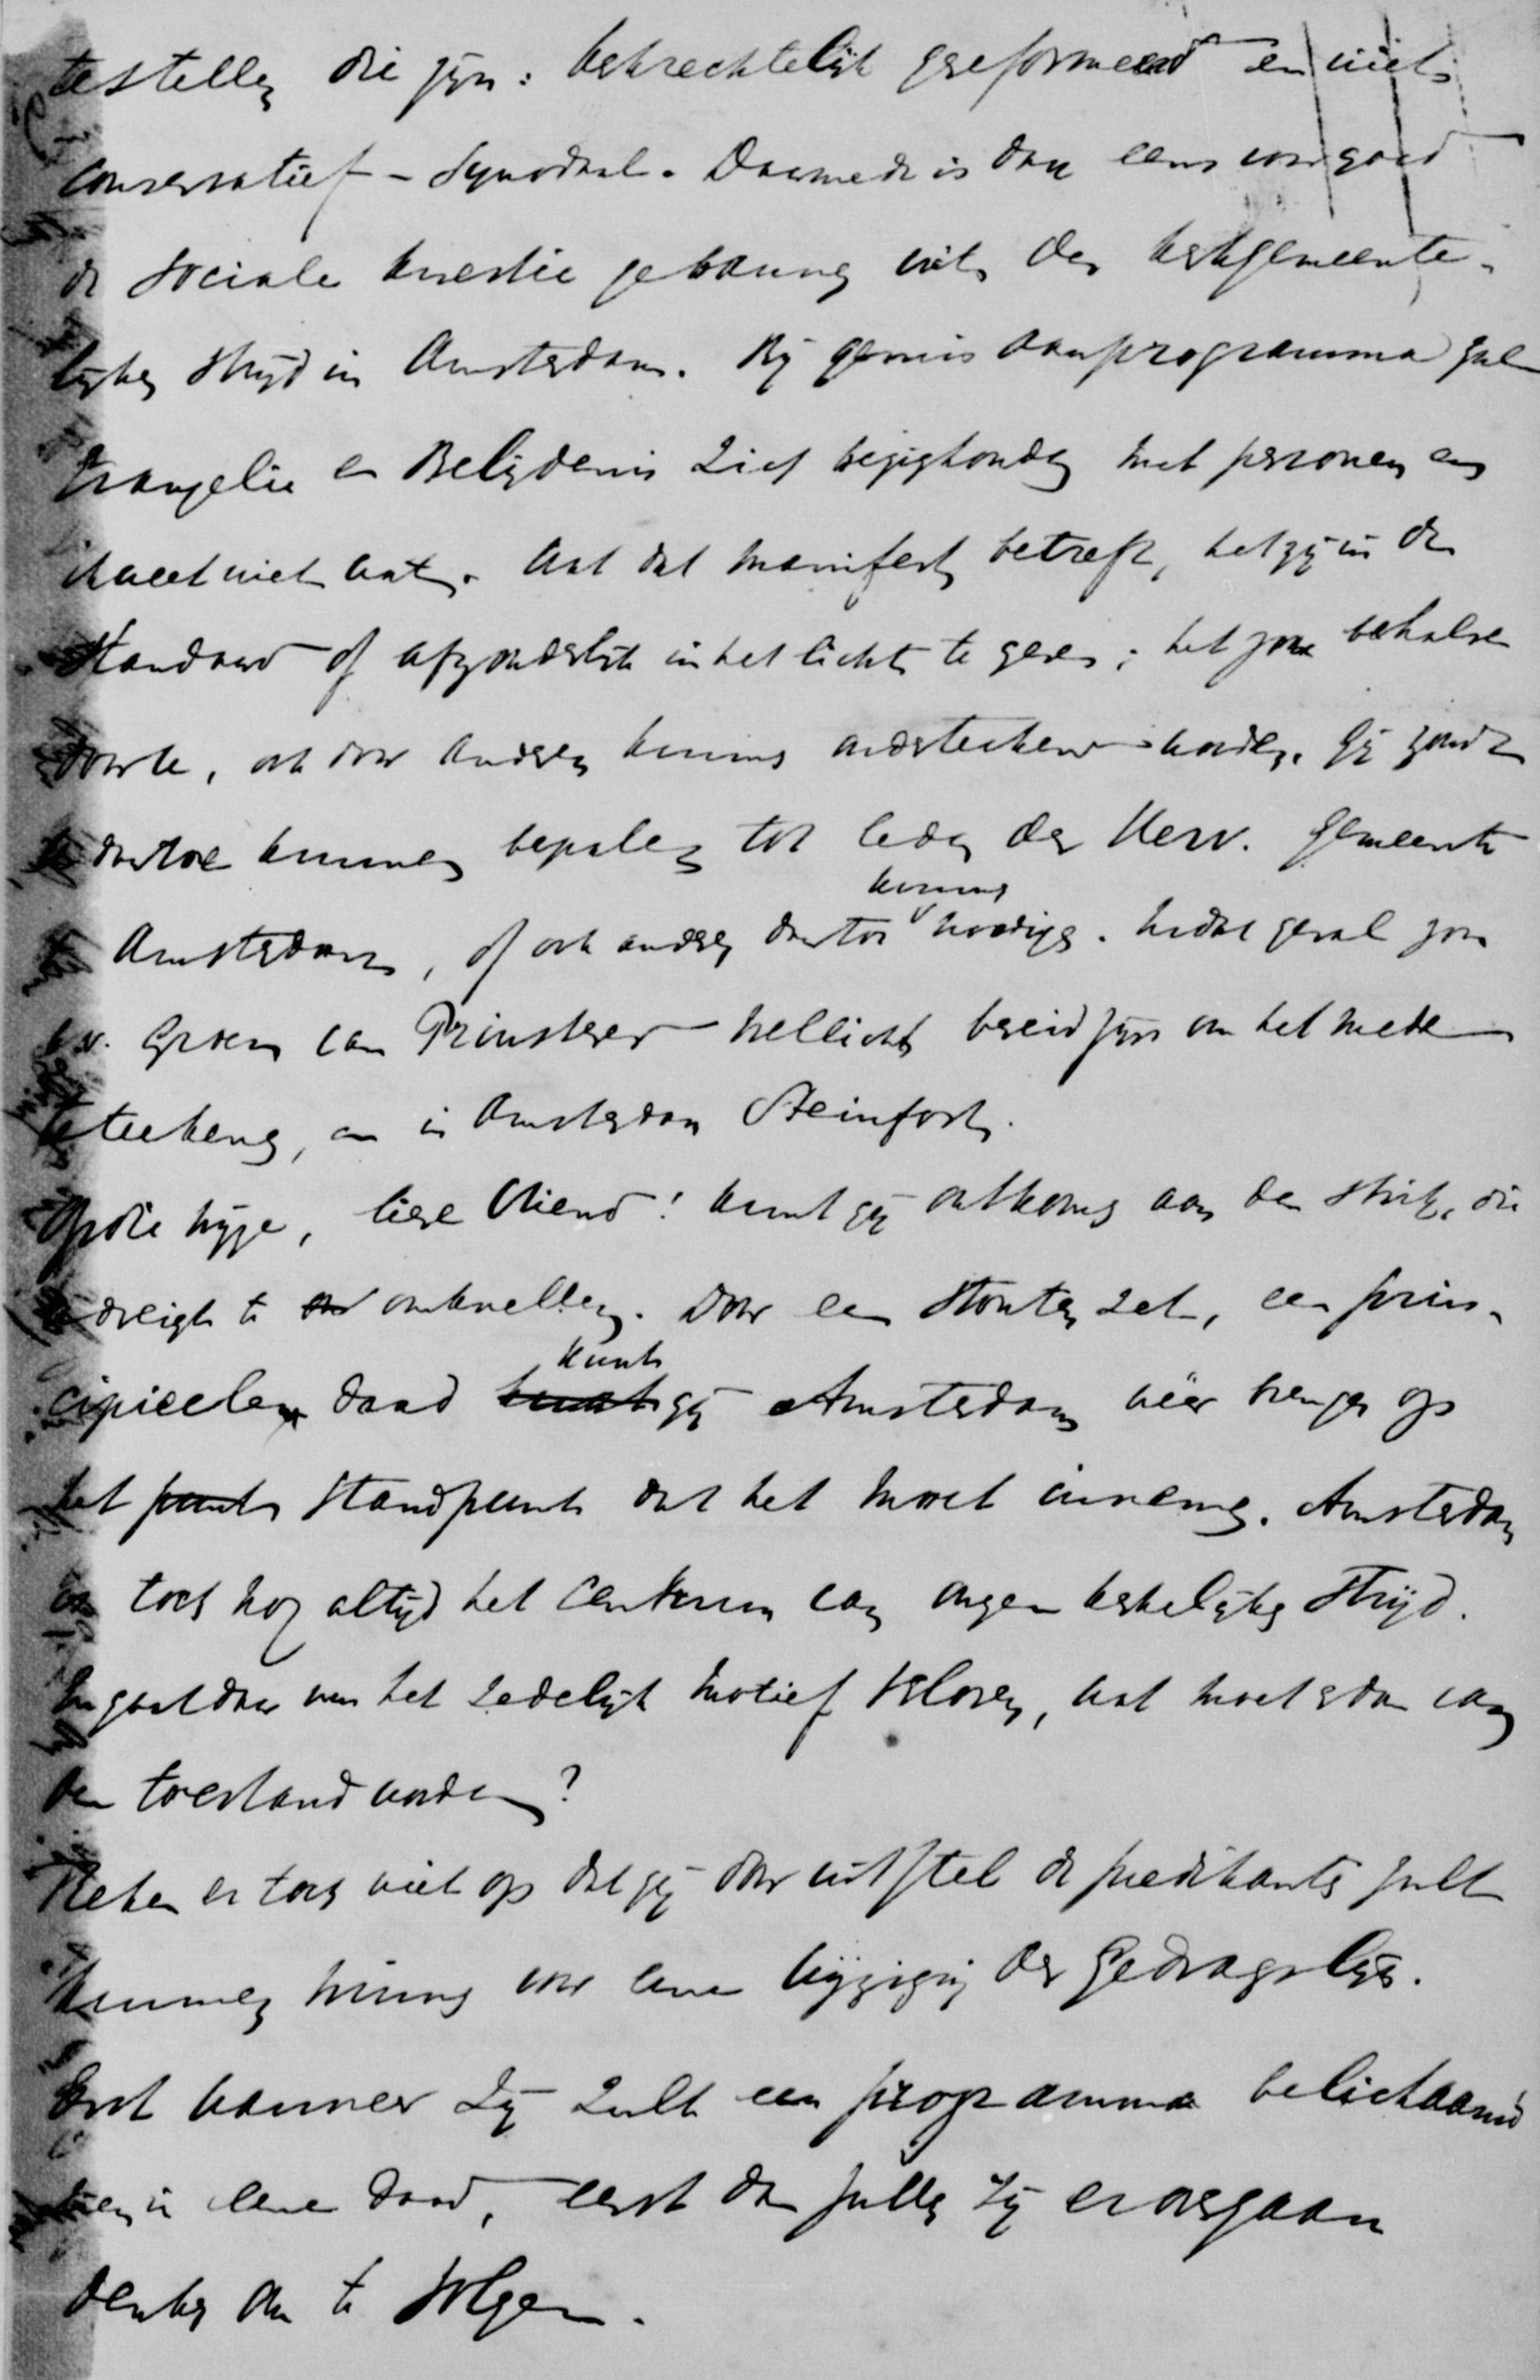 te stellen die zijn: kerkrechtelijk gereformeerd en niet
conservatief-Synodaal. Daarmede is dan eens voor goed
de sociale kwestie gebannen uit den kerkgemeente-
lijken strijd in Amsterdam. Bij gemis aan programma zal
Evangelie en Belijdenis zich bezighouden met personen en
ik weet niet wat. Wat dat manifest betreft, hetzij in de
Standaard of afzonderlijk in het licht te geven; het zou behalve
door U, ook door anderen kunnen onderteekend worden. Gij zoudt
U daartoe kunnen bepalen tot leden der Herv. Gemeente
te Amsterdam, of ook anderen daartoe kunnen noodigen. In dat geval zou
b.v. Groen van Prinsterer wellicht bereid zijn om het mede
te teekenen, en in Amsterdam Steinfort.
Op die wijze, lieve Vriend! kunt gij ontkomen aan den strik, die
U dreigt te omknellen. Door een stouten zet, een prin-
cipieelen daad kunt gij Amsterdam weer brengen op
het punt standpunt dat het moet innemen. Amsterdam
is toch nog altijd het centrum van onzen kerkelijken strijd.
En gaat daar nu het zedelijk motief verloren, wat moet er dan van
den toestand worden?
Reken er toch niet op dat gij door uitstel de predikanten zult
kunnen winnen voor eene wijziging der Gedragslijn.
Eerst wanneer zij zult een programma belichaamd
zien in eene daad, eerst dan zullen zij er over gaan
denken om te volgen.